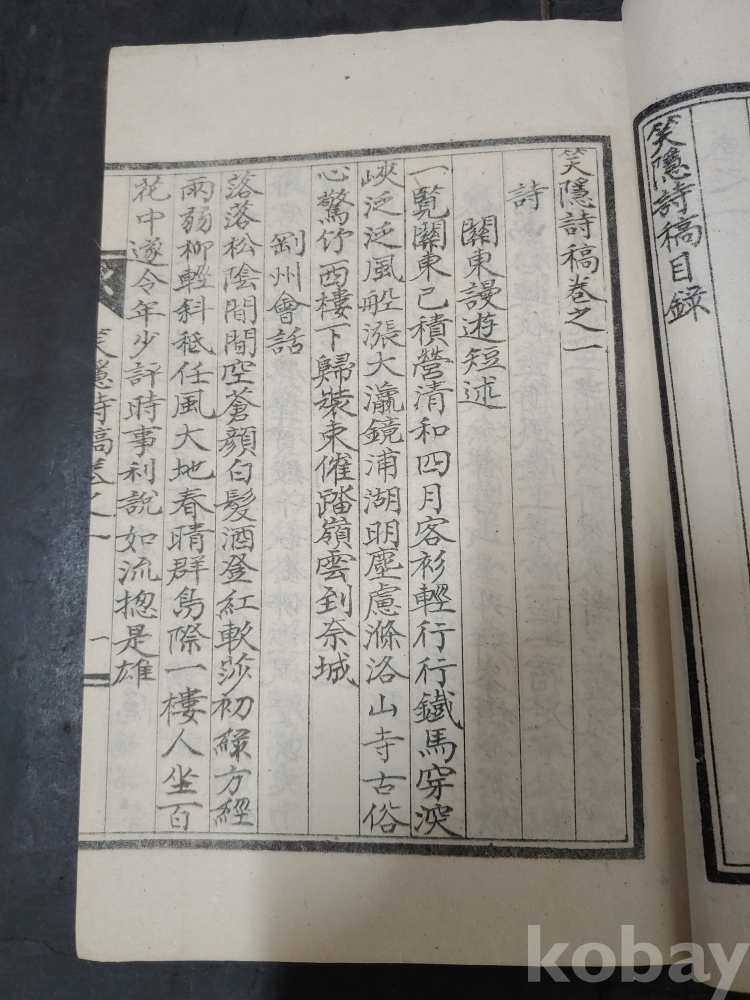 笑隱詩稿目錄
笑隱詩稿卷之一
詩
關東謾遊短述
一覧關東已積營清和四月客衫輕行行鐵馬穿深
峽泛泛風舩漲大瀛鏡浦湖明塵慮滌洛山寺古俗
心驚竹西樓下歸裝束催踏嶺雲到奈城
剛州會話
落落松陰間間空蒼顔白髮酒登紅軟莎初綠方經
雨弱柳輕斜秪任風大地春晴群島際一樓人坐百
花中遂令年少評時事利說如流揔是雄
笑隱詩稿卷之一
一
kobay